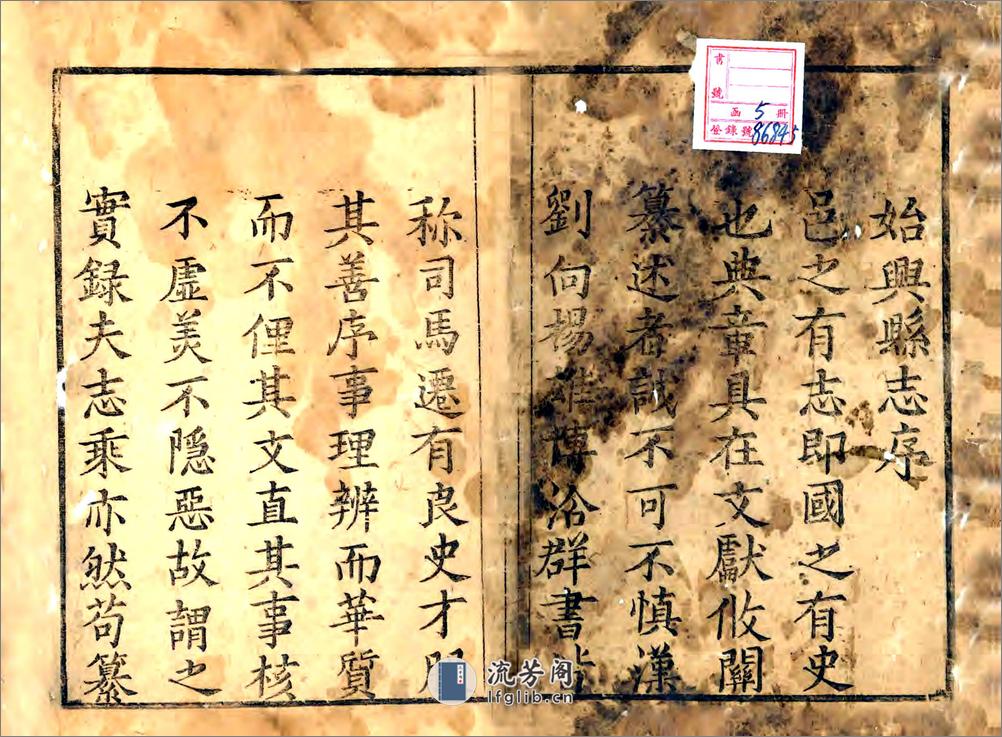 始興縣志序
邑之有志即國之有史
也典章具在文獻攸關
纂述者誠不可不慎漢
劉向楊雄博洽群書皆
称司馬遷有良史才服
其善序事理辨而華質
而不俚其文直其事核
不虛美不隠惡故謂之
實録夫志乘亦然苟纂
書號
函 5 冊
登錄號 86845
流芳阁
lfglib.com.cn